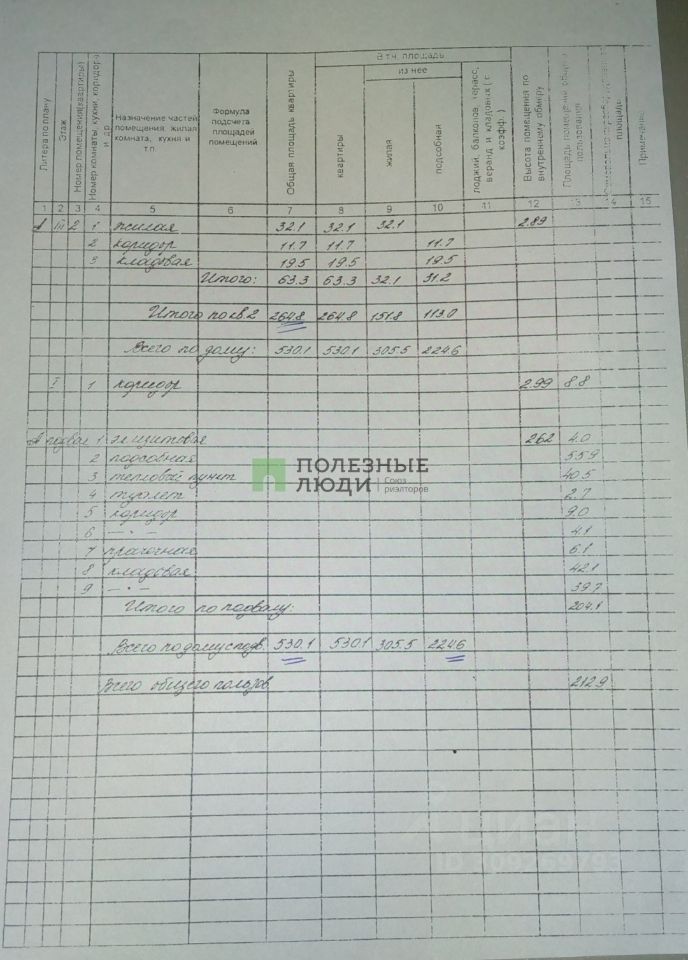 Литера по плану
Этаж
Номер помещения(квартиры)
Номер комнаты, кухни, коридора и др
Назначение частей помещения: жилая комната, кухня и т.п.
Формула подсчета площадей помещений
Общая площадь квартиры
В т.ч. площадь
квартиры
из нее
жилая
подсобная
лоджий, балконов, террас, веранд и кладовых ( с коэфф. )
Высота помещения по внутреннему обмеру
Площадь помещений общего пользования
площадь
Примечание
1 2 3 4 5 6 7 8 9 10 11 12 13 14 15
А III 2 1 жилая 32.1 32.1 32.1 2.89
2 коридор 11.7 11.7 11.7
3 кладовая 19.5 19.5 19.5
Итого: 63.3 63.3 32.1 31.2
Итого по кв.2 264.8 264.8 151.8 113.0
Всего по дому: 530.1 530.1 305.5 224.6
I 1 коридор 2.99 8.8
А подвал 1 эл щитовая 262 4.0
2 подсобная 55.9
3 тепловой пункт 40.5
4 туалет 2.7
5 коридор 9.0
6 — " — 4.1
7 прачечная 6.1
8 кладовая 42.1
9 — " — 39.7
Итого по подвалу: 204.1
Всего по дому с подв. 530.1 530.1 305.5 224.6
Всего общего пользов 212.9
ПОЛЕЗНЫЕ ЛЮДИ
Союз риэлторов